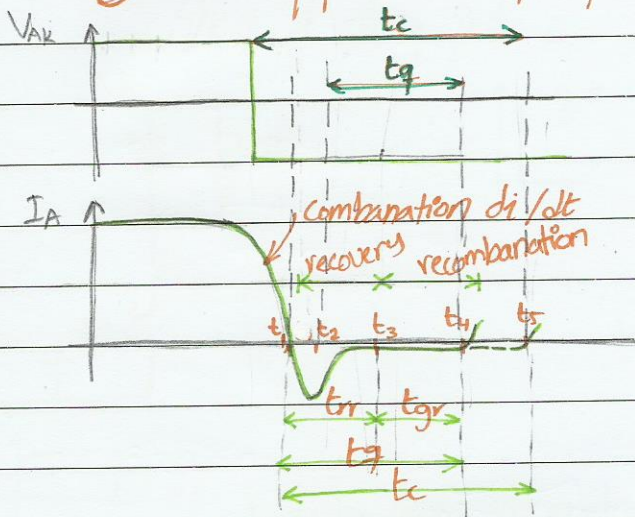 VAK
tc
tq
IA
combanation di/dt
recovery recombanation
t1 t2 t3 t4 t5
trr tgr
tq
tc